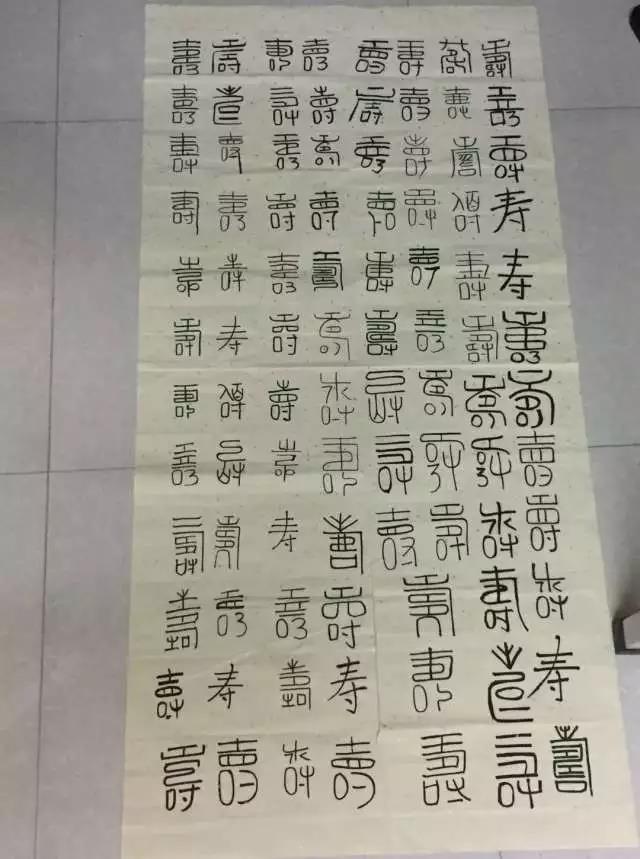 壽壽壽寿寿壽壽壽壽壽寿壽
壽壽壽壽壽壽壽壽壽壽壽壽
壽壽壽壽壽壽壽壽壽壽壽壽
壽壽壽壽壽壽壽壽壽
壽壽壽壽壽壽壽壽壽壽寿壽
壽壽壽壽壽壽壽壽寿壽壽壽
壽壽壽壽壽寿壽壽壽壽寿壽
壽壽壽壽壽壽壽壽壽壽壽壽